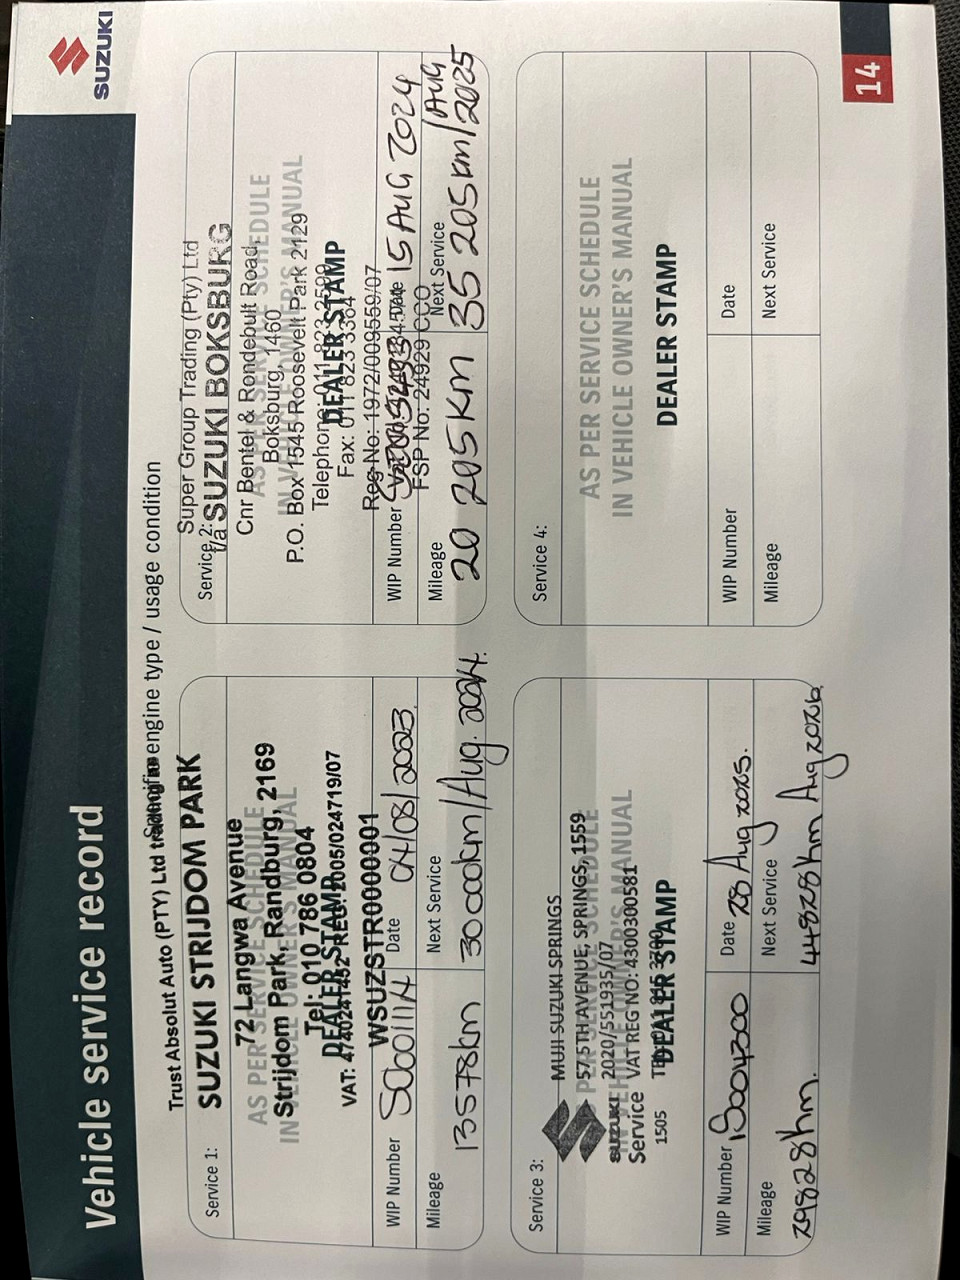 SUZUKI
Vehicle service record
Specific to engine type / usage condition
Service 1:
Trust Absolut Auto (PTY) Ltd trading as
SUZUKI STRIJDOM PARK
72 Langwa Avenue
AS PER SERVICE SCHEDULE
Strijdom Park, Randburg, 2169
IN VEHICLE OWNER'S MANUAL
Tel: 010 786 0804
DEALER STAMP
VAT: 4740241452 REG: 2005/024719/07
WSUZSTR0000001
WIP Number
Date 04/08/2023
Mileage 13578km
Next Service 30000km/Aug. 2024.
Service 2:
Super Group Trading (Pty) Ltd
t/a SUZUKI BOKSBURG
Cnr Bentel & Rondebult Road,
AS PER SERVICE SCHEDULE
Boksburg, 1460
IN VEHICLE OWNER'S MANUAL
P.O. Box 1545 Roosevelt Park 2129
Telephone: 011 823
DEALER STAMP
Fax: 011 823 3364
Reg No: 1972/009559/07
WIP Number
Date 15 AUG 2024
FSP No: 24929
Mileage 20 205 Km
Next Service 35 205 km/Aug 2025
Service 3:
MUJI SUZUKI SPRINGS
57 5TH AVENUE, SPRINGS, 1559
AS PER SERVICE SCHEDULE
2020/551935/07
IN VEHICLE OWNER'S MANUAL
SUZUKI
Service VAT REG NO: 4300300581
1505
DEALER STAMP
WIP Number
Date 28 Aug 2025.
Mileage 29828km.
Next Service 44828km Aug 2026.
Service 4:
AS PER SERVICE SCHEDULE
IN VEHICLE OWNER'S MANUAL
DEALER STAMP
WIP Number
Date
Mileage
Next Service
14